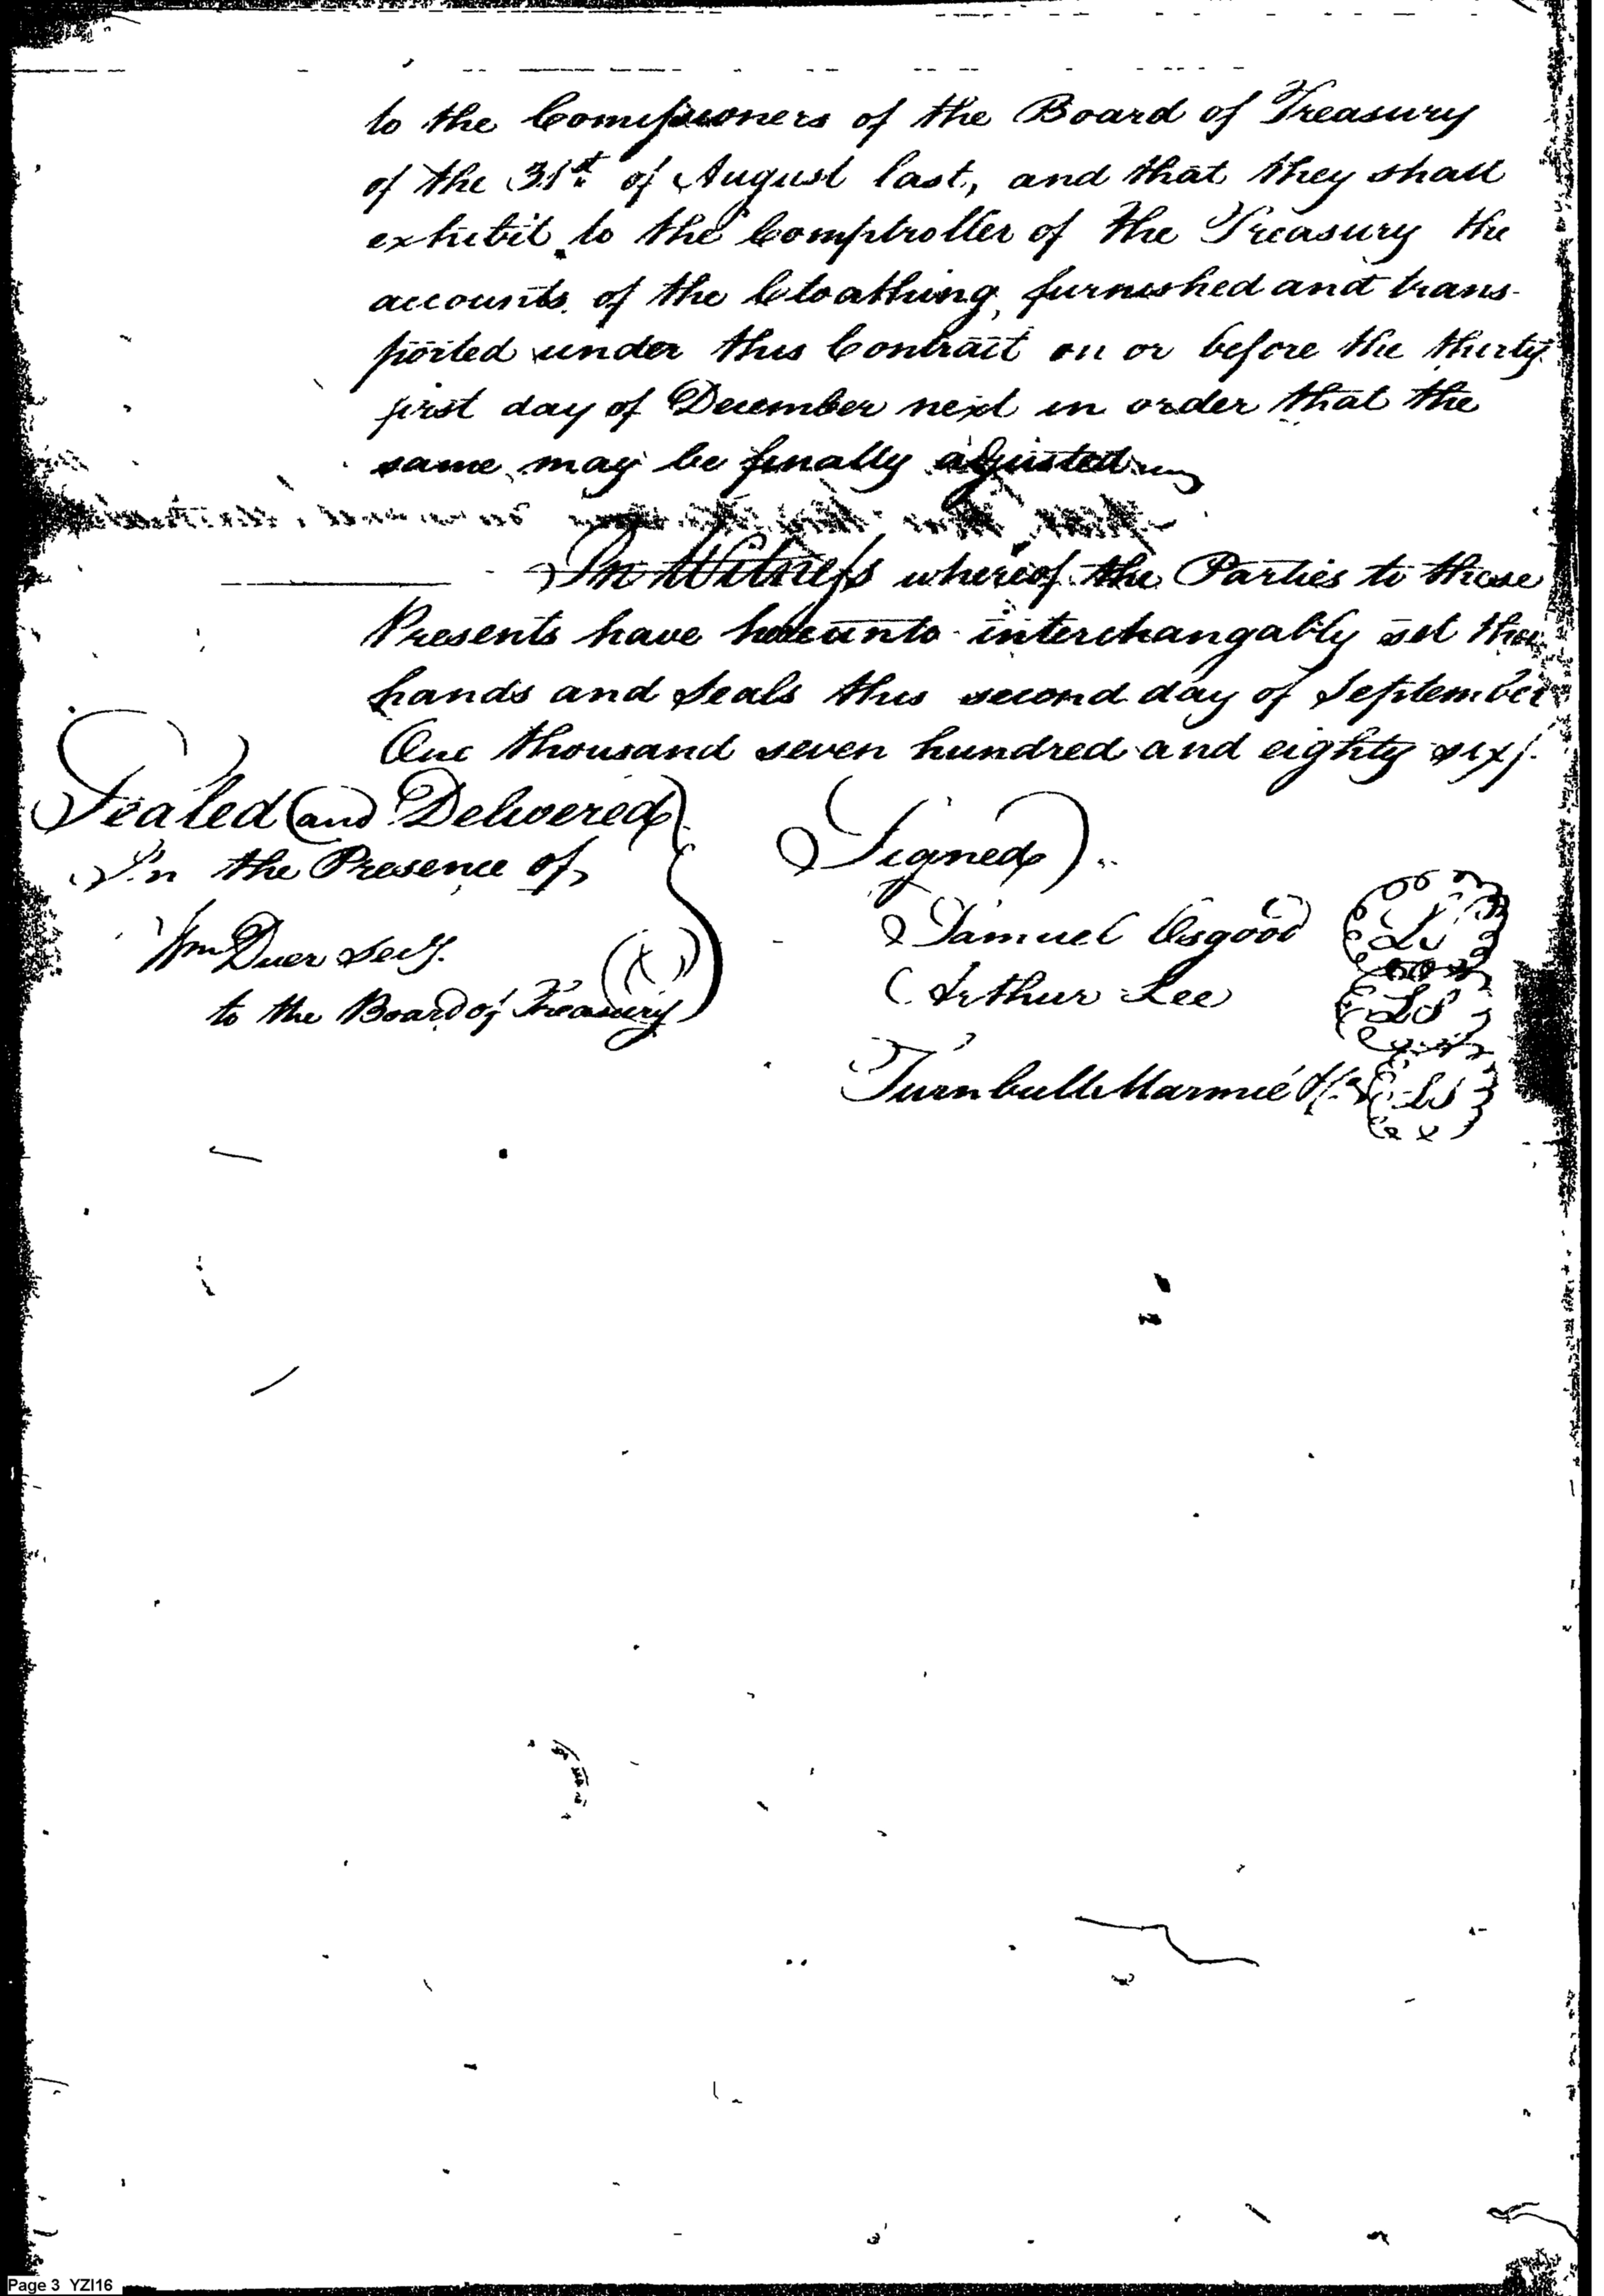 to the Comissioners of the Board of Treasury
of the 31st of August last, and that they shall
exhibit to the Comptroller of the Treasury the
accounts of the Cloathing, furnished and trans-
ported under this Contract on or before the thirty
first day of December next in order that the
same may be finally adjusted
In Witness whereof the Parties to these
Presents have hereunto interchangably set their
hands and Seals this second day of September
One thousand seven hundred and eighty six
Sealed and Delivered
In the Presence of
Wm Duer Secy.
to the Board of Treasury
Signed
Samuel Osgood LS
Arthur Lee LS
Turnbull Marmié & Co LS
Page 3 YZI16